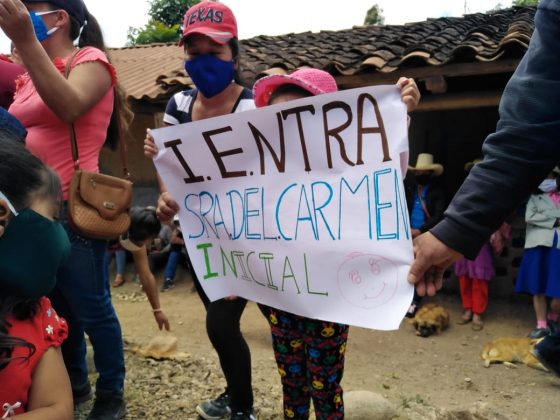 TEXAS
I.E.NTRA
SRA.DEL.CARMEN
INICIAL